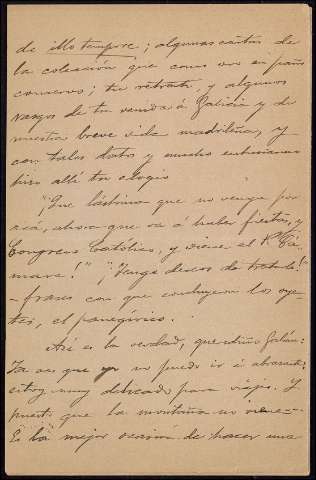 de illo tempore; algunas cartas de
la colección que como oro en paño
conservo; tu retrato, y algunos
rasgos de tu venida á Galicia y de
nuestra breve vida madrileña, y
con tales datos y mucho entusiasmo
hizo allí tu elogio
"¡Que lástima que no venga por
acá, ahora que va á haber fiestas, y
Congreso Católico, y viene el P. Cá-
mara!" "¡Tengo deseos de tratarle!"
—frases con que concluyeron los oyen-
tes, el panegírico.
Así es la verdad, queridiño Galán:
Ya ves que yo no puedo ir á abrazarte;
estoy muy delicado para viajes. Y
puesto que la montaña no viene=
Es la mejor ocasión de hacer una